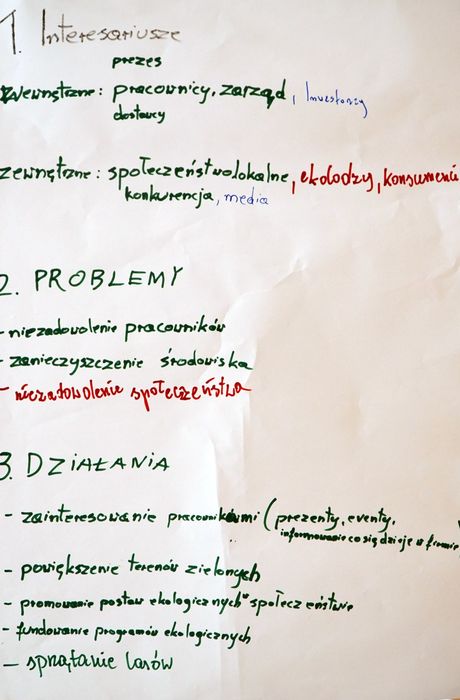 1. Interesariusze
prezes
Wewnętrzne: pracownicy, zarząd, Inwestorzy
dostawcy
zewnętrzne: społeczeństwo lokalne, ekolodzy, konsumenci
konkurencja, media
2. PROBLEMY
- niezadowolenie pracowników
- zanieczyszczenie środowiska
- niezatowolenie społeczeństwa
3. DZIAŁANIA
- zainteresowanie pracownikami (prezenty, eventy,
informowanie co się dzieje w firmie
- powiększenie terenów zielonych
- promowanie postaw ekologicznych społeczeństwie
- fundowanie programów ekologicznych
- sprzątanie lasów